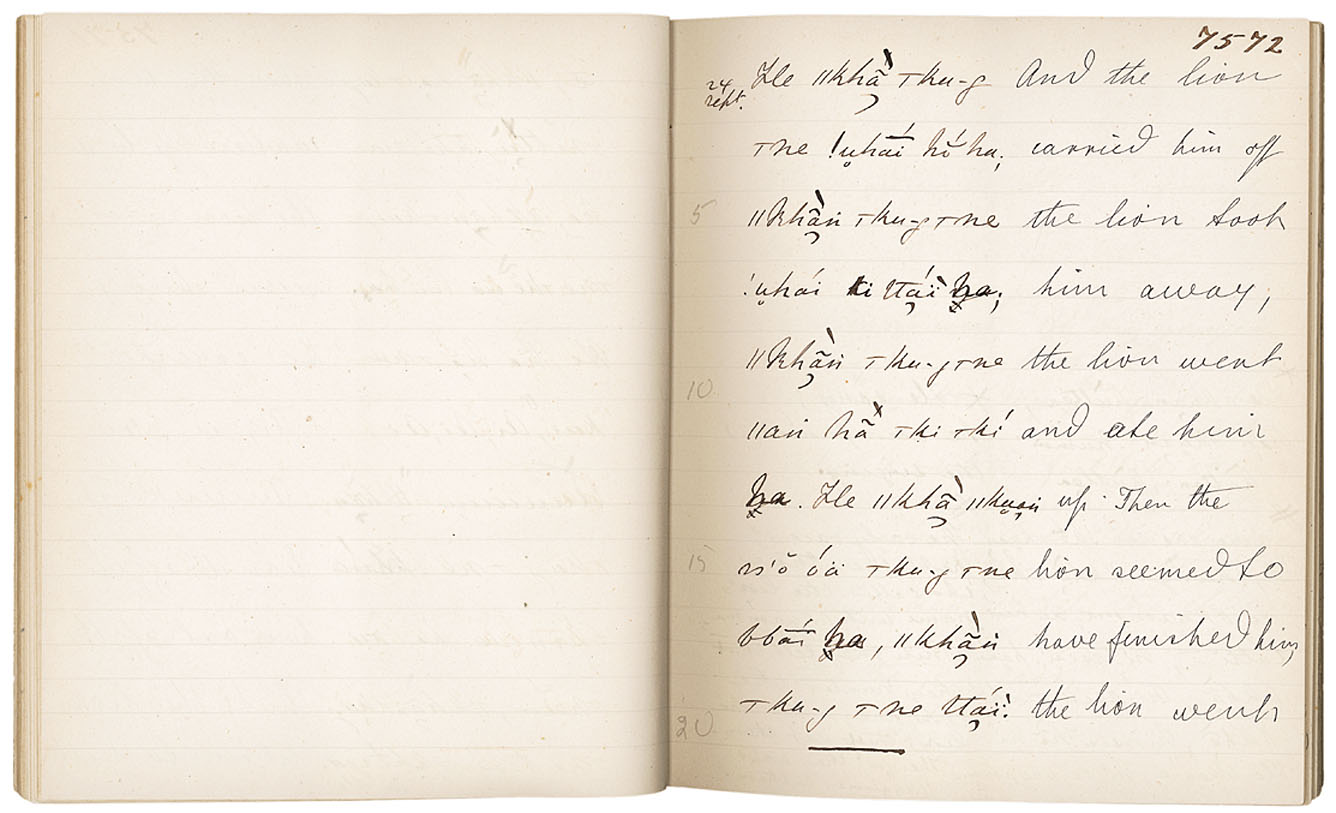 7572
24 Sept. He ǁkhã̀ ⊤ku-g And the lion
⊤ne !u̥hāí hŏ́ ha, carried him off
5 ǁkhã̀n ⊤ku-g ⊤ne the lion took
!u̥hái ki ttáï ha; him away,
ǁkhã̀n ⊤ku-g ⊤ne the lion went
10
ǁan hã̀ ⊤ki ⊤kí and ate him
ha. He ǁkhã̀ ǁkuan up. Then the
15 ss'ŏ óä ⊤ku-g ⊤ne lion seemed to
bbāí ha, ǁkhã̀n have finished him,
⊤ku-g ⊤ne ttáï. the lion went
20